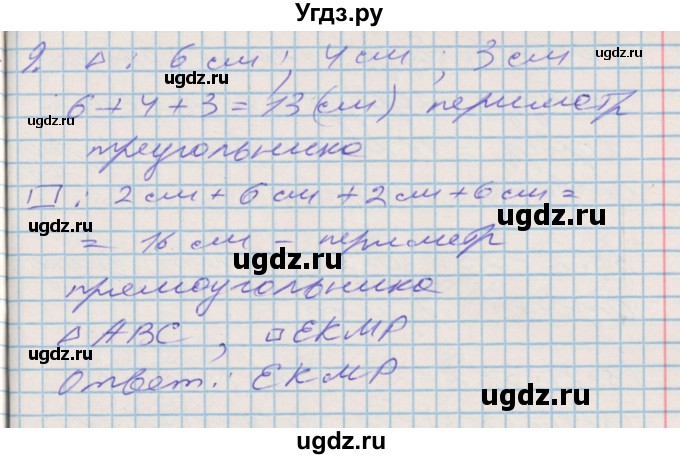 Угдз.ру
2. △: 6 см; 4 см; 3 см
6 + 4 + 3 = 13 (см) периметр
треугольника
□: 2 см + 6 см + 2 см + 6 см =
= 16 см - периметр
прямоугольника
△ ABC, □ EKMP
Ответ: EKMP
ugdz.ru
ugdz.ru
ugdz.ru
ugdz.ru
ugdz.ru
ugdz.ru
ugdz.ru
ugdz.ru
ugdz.ru
ugdz.ru
ugdz.ru
ugdz.ru